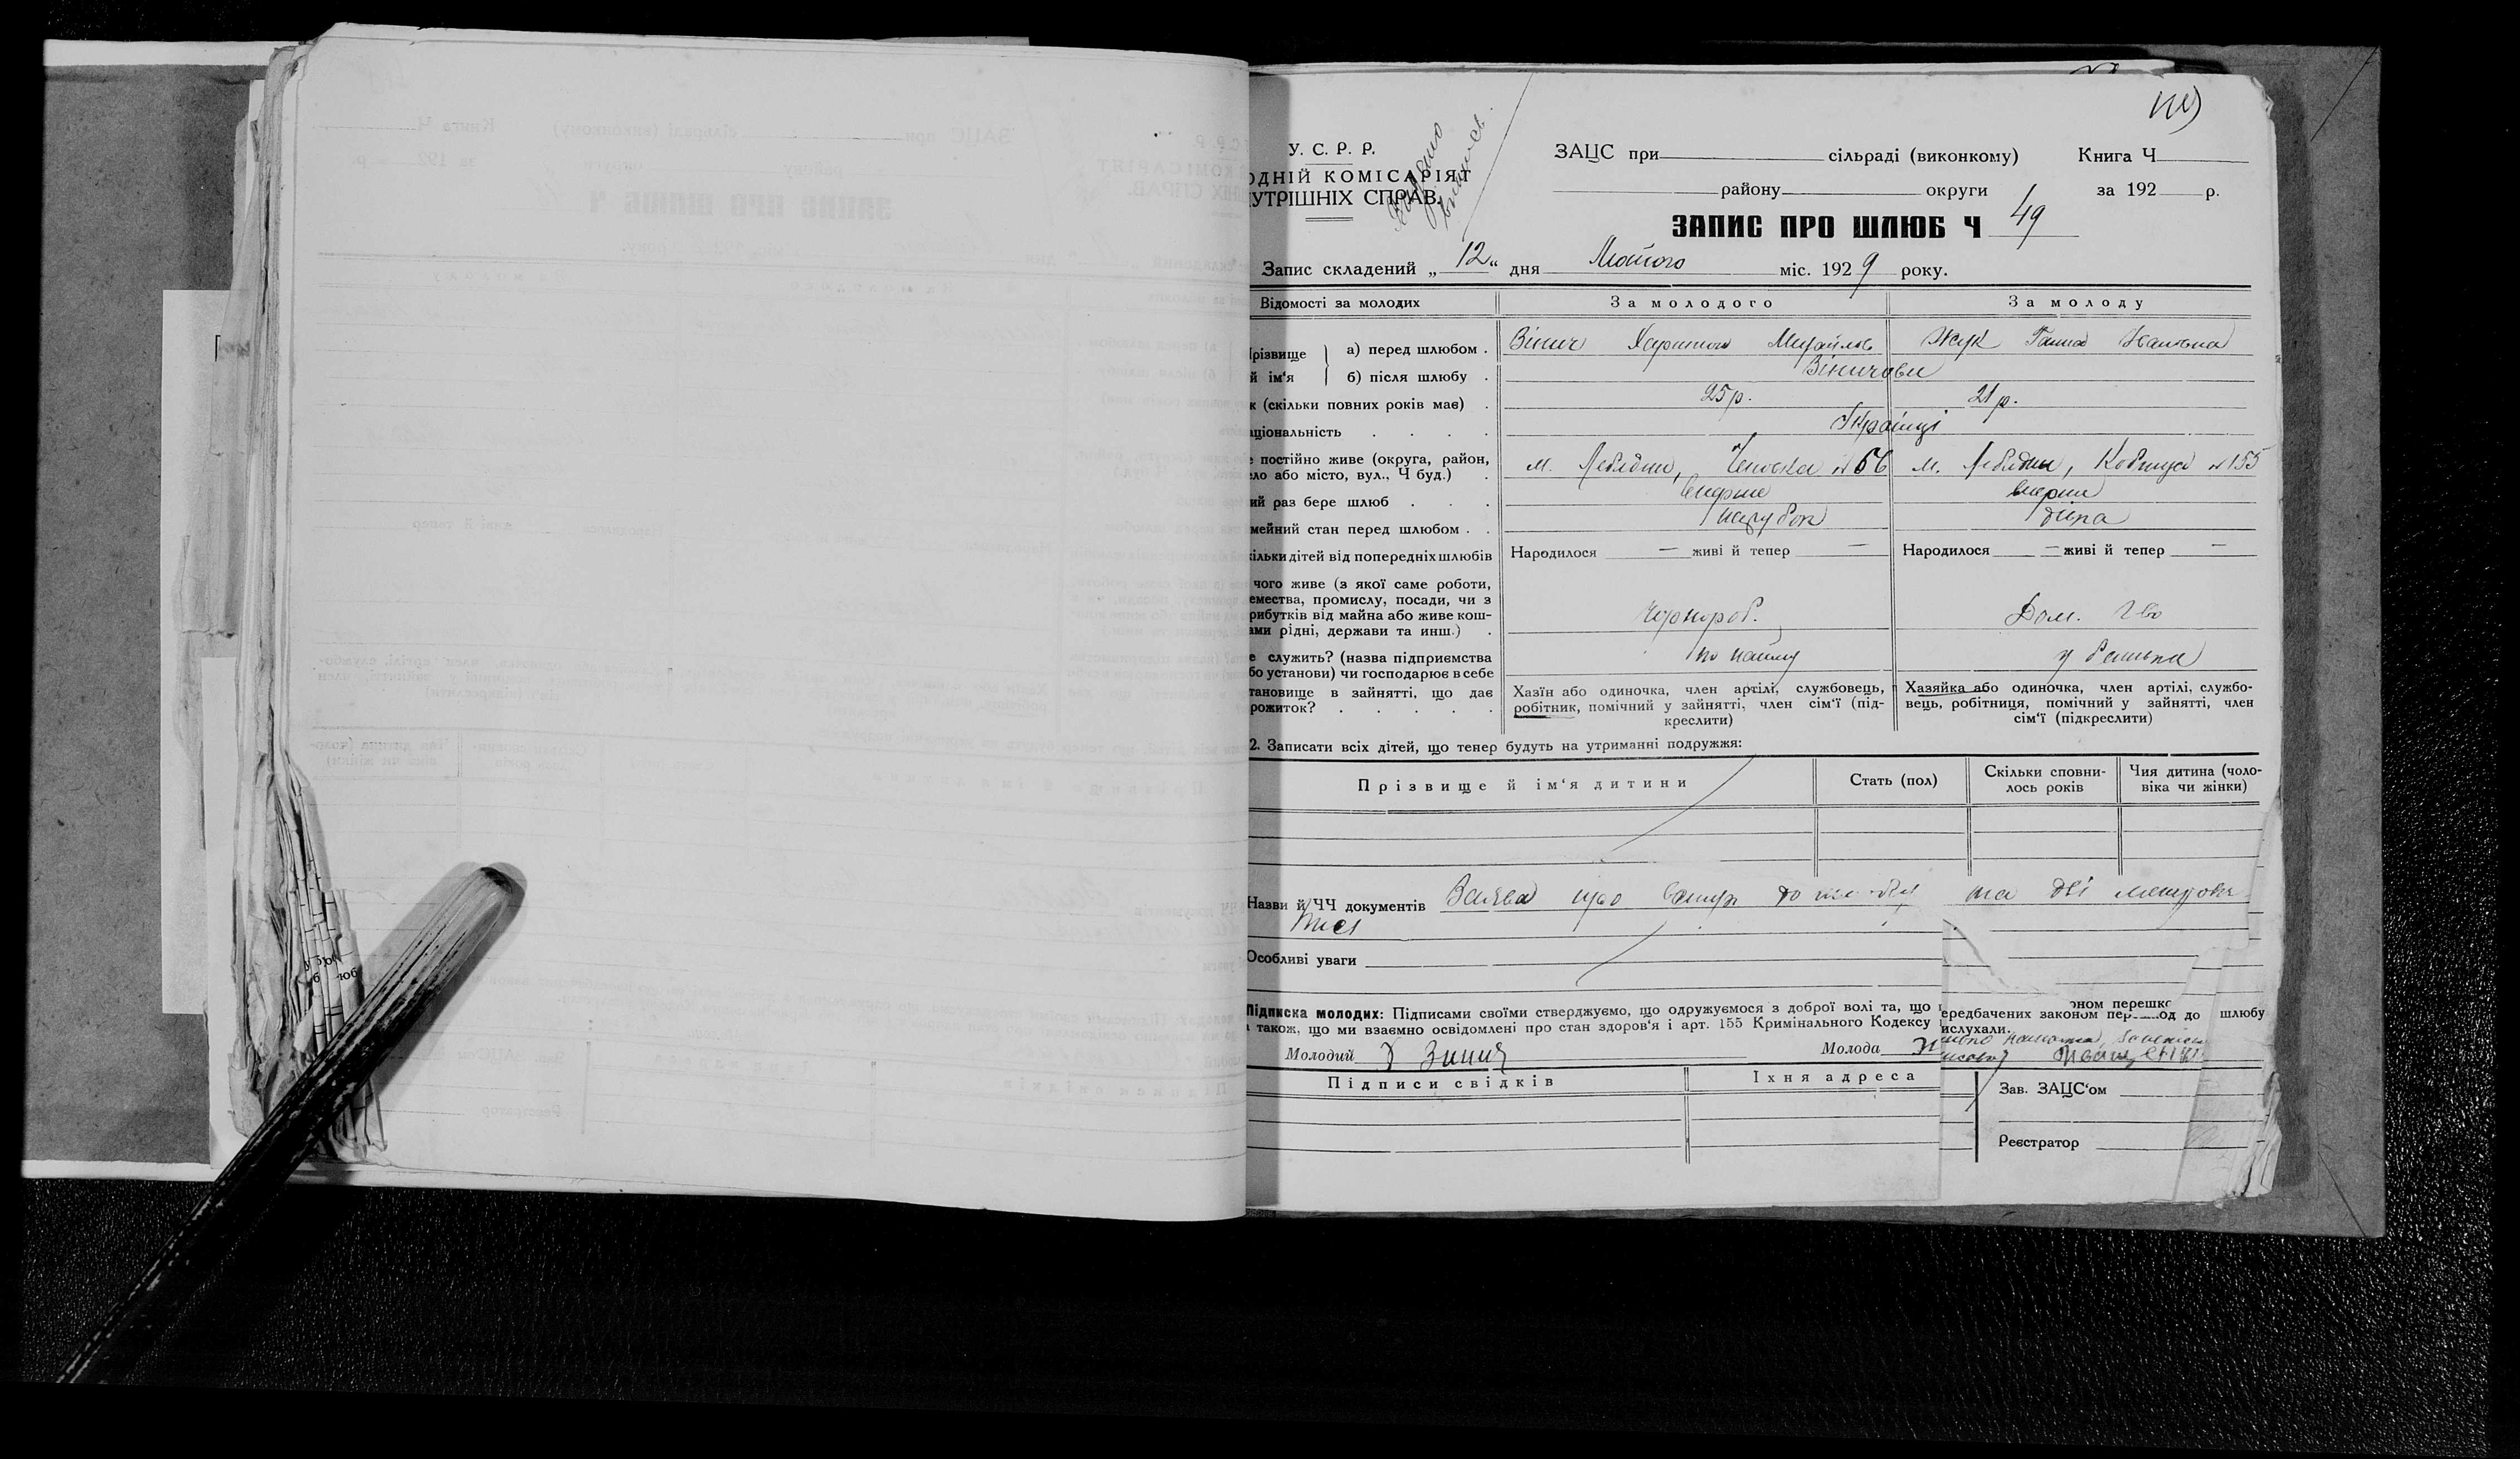 У. С. Р. Р.
ОДНІЙ КОМІСАРІЯТ
УТРІШНІХ СПРАВ.
ЗАЦС при сільраді (виконкому) Книга Ч
району округи за 192 р.
ЗАПИС ПРО ШЛЮБ Ч 49
Запис складений „ 12 “ дня Лютого міс. 1929 року.
Відомості за молодих За молодого За молоду
різвище а) перед шлюбом . Вінич Харитон Михайлов Жук Ганна Іванівна
й ім‘я б) після шлюбу . Віничови
к (скільки повних років має) . 25 р. 21 р.
ціональність . . . . Українці
постійно живе (округа, район,
ло або місто, вул., Ч буд.) . м. Лебедин, №56 м. Лебедин, №155
ий раз бере шлюб . . . вперше вперше
мейний стан перед шлюбом . . парубок діва
ільки дітей від попередніх шлюбів Народилося — живі й тепер — Народилося — живі й тепер —
чого живе (з якої саме роботи,
емества, промислу, посади, чи з
рибутків від майна або живе кош-
ами рідні, держави та инш.) . Чорнороб. Дом. г-во
е служить? (назва підприємства
бо установи) чи господарює в себе по найму у батька
тановище в зайнятті, що дає
рожиток? . . . . .
Хазїн або одиночка, член артілі, службовець,
робітник, помічний у зайнятті, член сім‘ї (під-
креслити)
Хазяйка або одиночка, член артілі, службо-
вець, робітниця, помічний у зайнятті, член
сім‘ї (підкреслити)
2. Записати всіх дітей, що тепер будуть на утриманні подружжя:
Прізвище й ім‘я дитини Стать (пол) Скільки сповни-
лось років Чия дитина (чоло-
віка чи жінки)
Назви й ЧЧ документів Заява про вступ до та дві
Особливі уваги
Підписка молодих: Підписами своїми стверджуємо, що одружуємося з доброї волі та, що ередбачених законом пер од до шлюбу
також, що ми взаємно освідомлені про стан здоров‘я і арт. 155 Кримінального Кодексу ислухали.
Молодий Х Зинич Молода
Підписи свідків Їхня адреса
Зав. ЗАЦС‘ом
Реєстратор